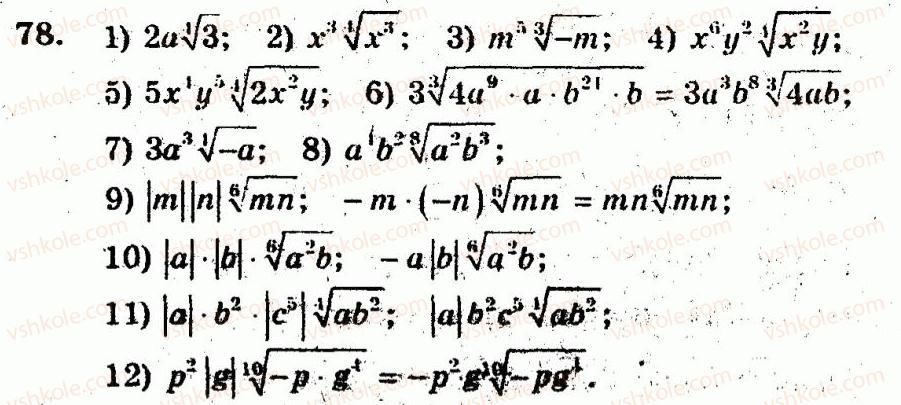 78. 1) 2a∜3; 2) x³∜(x³); 3) m⁵∛(−m); 4) x⁶y²∜(x²y);
5) 5x⁴y⁵∜(2x²y); 6) 3∛(4a⁹ · a · b²¹ · b) = 3a³b⁸∛(4ab);
7) 3a³∜(−a); 8) a⁴b²⁸√(a²b³);
9) |m||n|⁶√(mn); −m · (−n)⁶√(mn) = mn⁶√(mn);
10) |a| · |b| · ⁶√(a²b); −a|b|⁶√(a²b);
11) |a| · b² · |c⁵|∜(ab²); |a|b²c⁵∜(ab²);
12) p²|g|¹⁰√(−p · g⁴) = −p²g¹⁰√(−pg⁴).